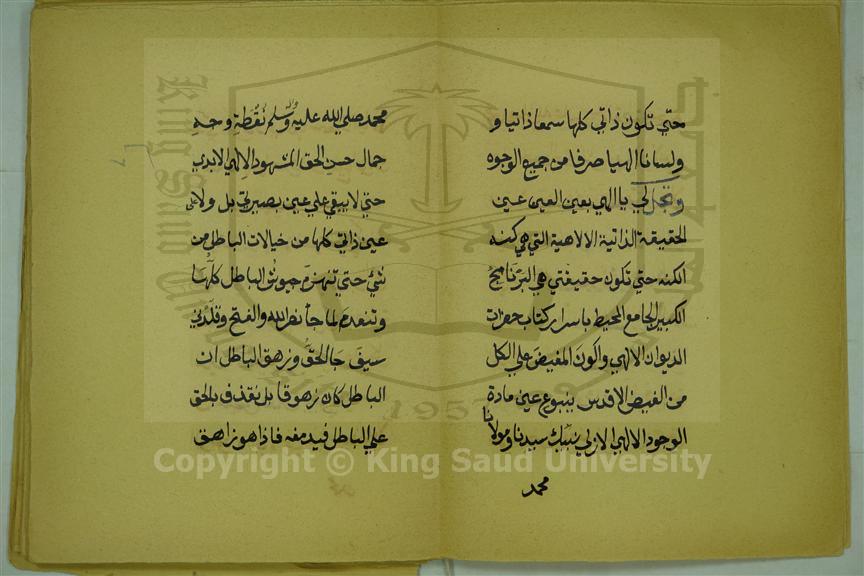 حتي تكون ذاتي كلها سمعا ذاتيا و
ولسانا الهيا صرفا من جميع الوجوه
وتجل لي يا الهي بعين العين عين
الحقيقة الذاتية الالاهية التي هي كنه
الكنه حتي تكون حقيقتي هي البرنامج
الكبير الجامع المحيط باسرار كتاب حضرات
الديوان الالهي واكون المفيض علي الكل
من الفيض الاقدس ينبوع عين مادة
الوجود الالهي الازلي نبيك سيدنا ومولانا
محمد
محمد صلي الله عليه وسلم نقطة وجه
جمال حسن الحق المشهود الالهي الابدي
حتي لا يبقي علي عين بصيرتي بل ولا علي
عين ذاتي كلها من خيالات الباطل من
شئ حتي تنهزم جيوش الباطل كلها
وتنعدم لما جا نصر الله والفتح وقلدني
سيف جا الحق وزهق الباطل ان
الباطل كان زهوقا بل نقذف بالحق
علي الباطل فيدمغه فاذا هو زاهق
King Saud University
1957
Copyright © King Saud University